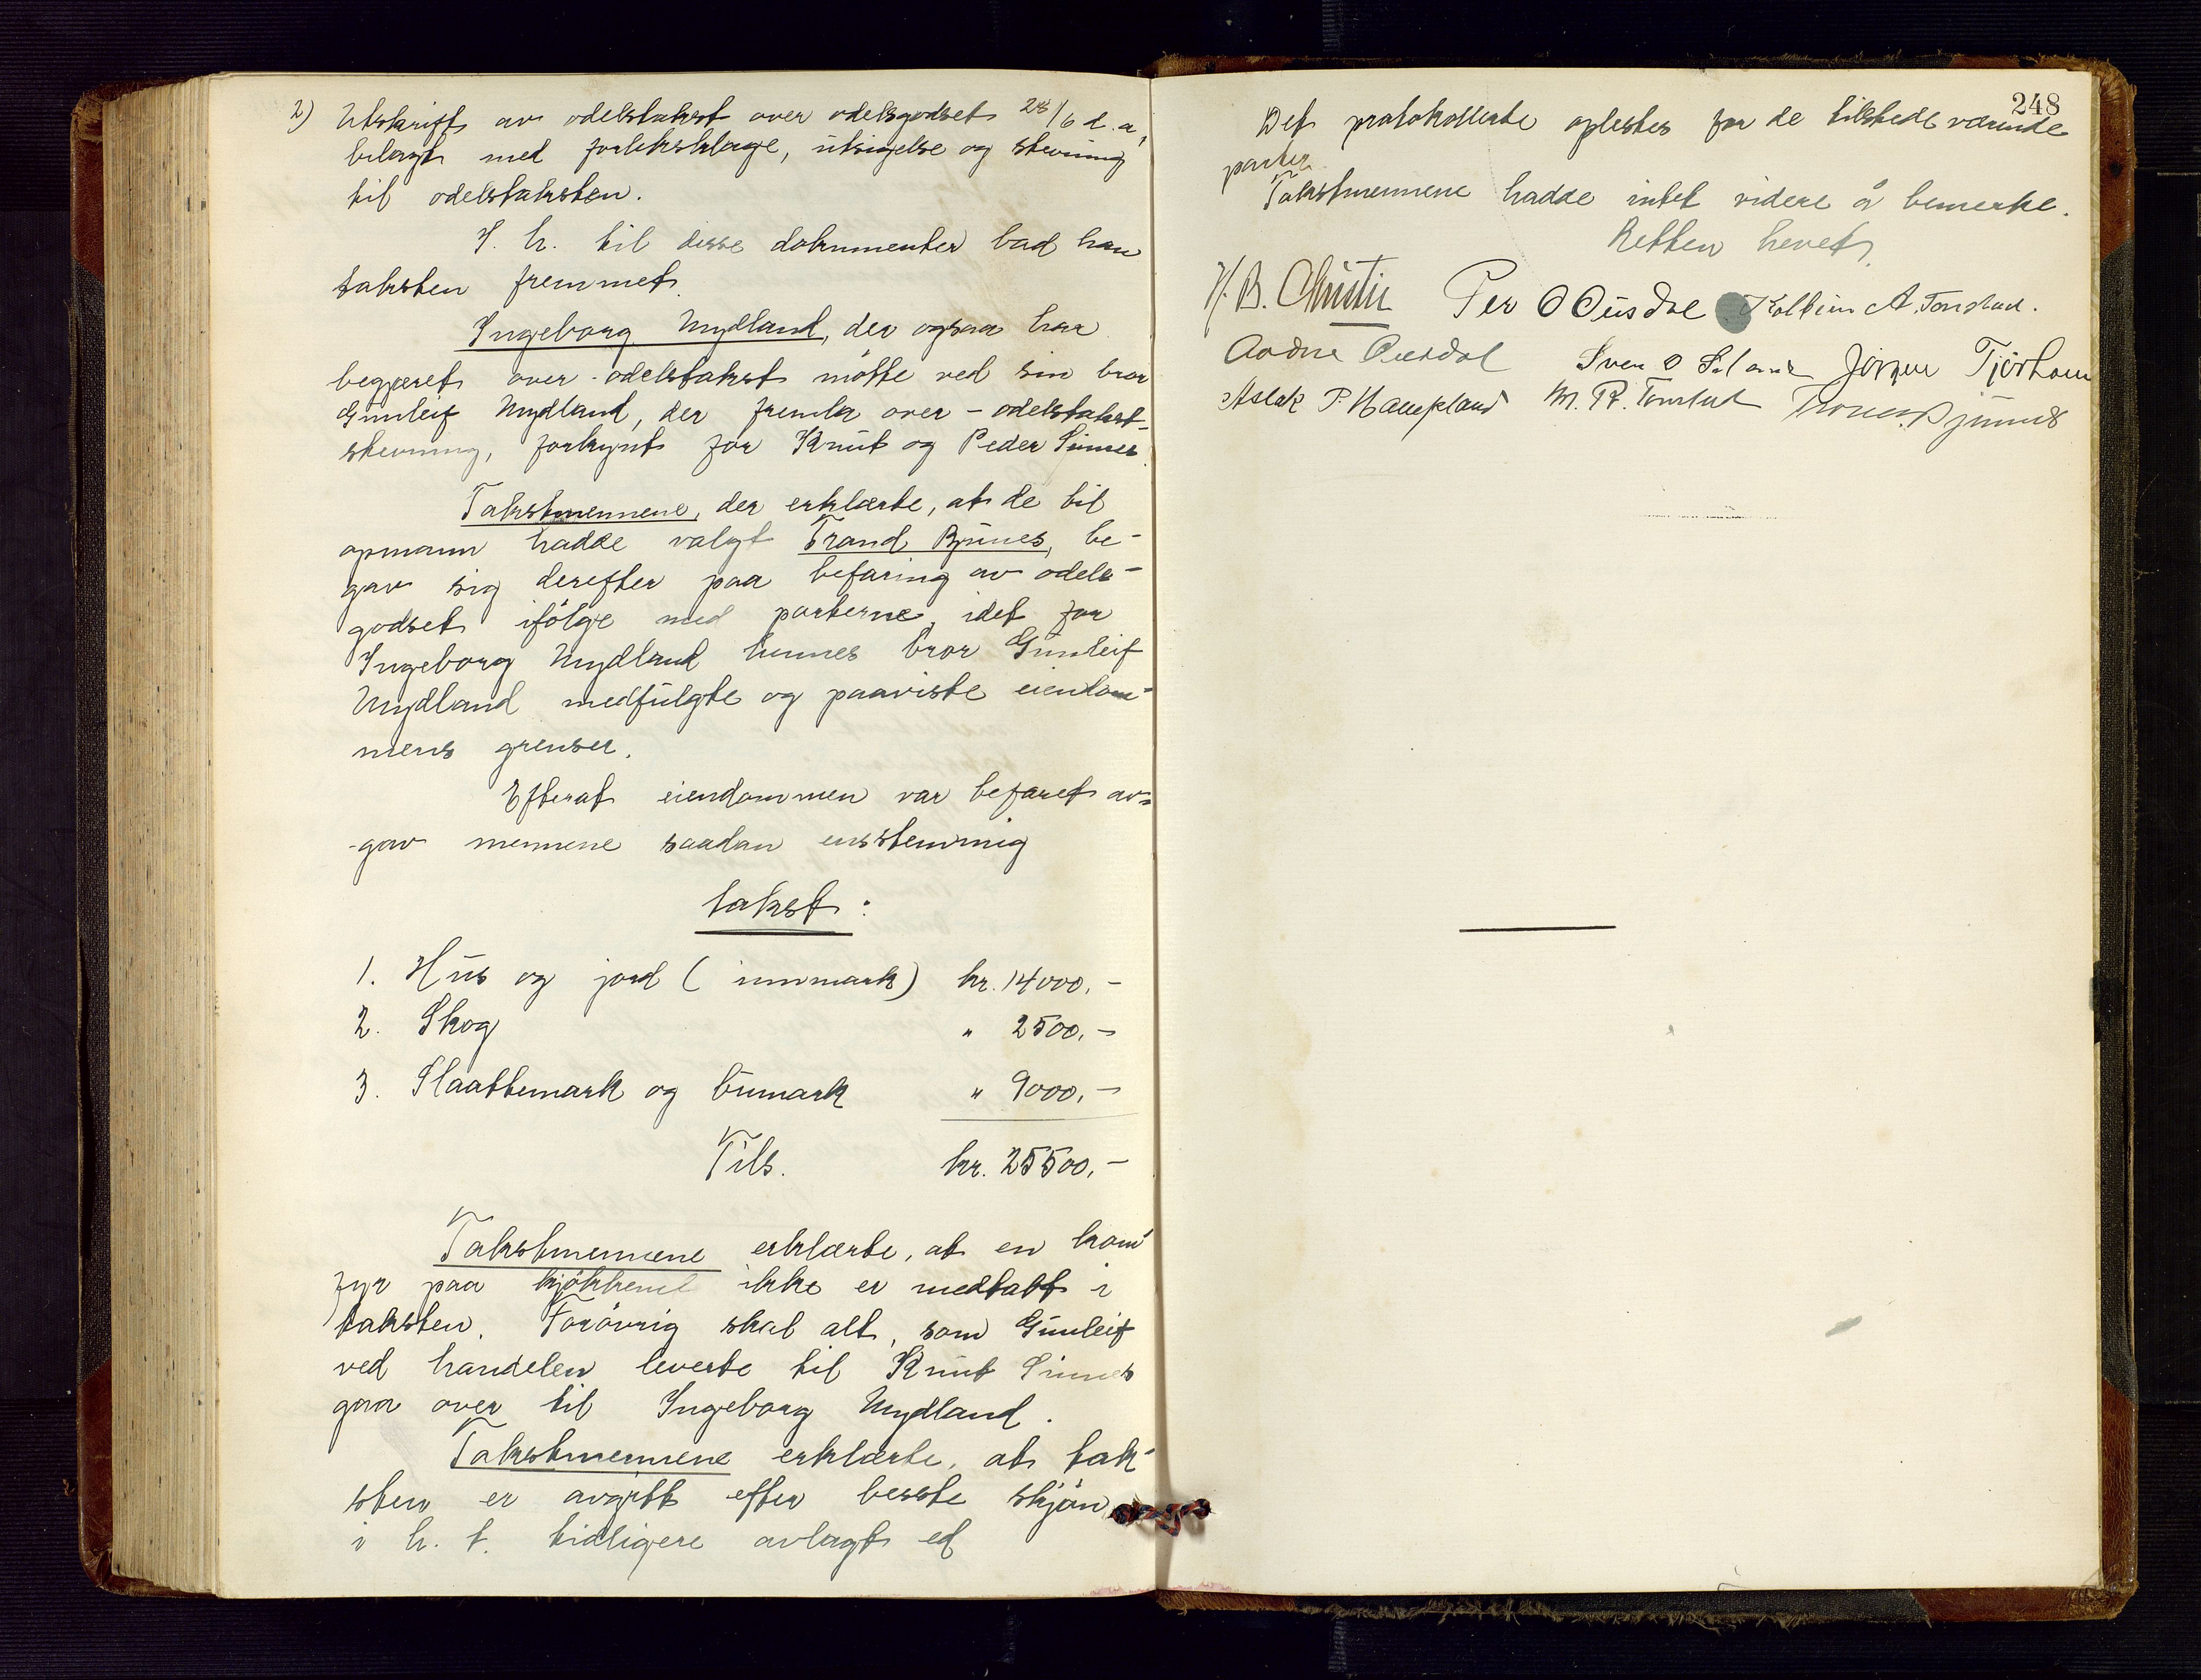 2) Utskrift av odelstakst over odelsgodset 28/6 d. a,
bilagt med forliksklage, utsigelse og stevning
til odelstaksten.
I. h. til disse dokumenter bad han
taksten fremmet.
Ingeborg Mydland, der ogsaa har
begjæret over-odelstakst møtte ved sin bror
Gunleif Mydland, der fremla over-odelstakst-
stevning, forkynt for Knut og Peder Sinnes
Takstmennene, der erklærte, at de til
opmann hadde valgt Trond Bjunes, be-
gav sig derefter paa befaring av odels-
godset ifølge med parterne, idet for
Ingeborg Mydland hennes bror Gunleif
Mydland medfulgte og paaviste eiendom-
mens grenser.
Efterat eiendommen var befaret av-
-gav mennene saadan enstemmig
takst:
1. Hus og jord (innmark) kr. 14000,-
2. Skog " 2500,-
3. Slaattemark og bumark " 9000,-
Tils. kr. 25500,-
Takstmennene erklærte, at en kom-
fyr paa kjøkkenet ikke er medtatt i
taksten. Forøvrig skal alt, som Gunleif
ved handelen leverte til Knut Sinnes
gaa over til Ingeborg Mydland.
Takstmennene erklærte, at tak-
sten er avgitt efter beste skjøn
i h. t. tidligere avlagt ed
248
Det protokollerte oplestes for de tilstedeværende
parter
Takstmennene hadde intet videre å bemerke.
Retten hevet.
H. B. Christie Per O Ousdal Kolbein A. Tonstad.
Aadne Ousdal Sven O Jørgen Tjørhom
Aslak P. Haugland M. R. Tonstad Trond Bjunes